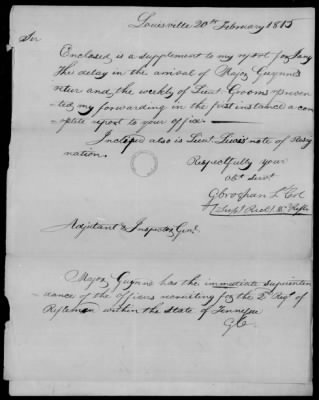 Louisville 20th February 1815
Sir
Enclosed is a supplement to my report for Jany
The delay in the arrival of Major Gwynne's
and the weekly of Lieut Grooms preven
-ted my forwarding in the first instance a com
-plete report to your office.
Inclosed also is Lieut Lewis' note of resig
nation.
Respectfully your
obt Servt
G Croghan Lt Col
Adjutant & Inspector Genl
Major Gwynne has the immediate superinten
-dance of the officers recruiting for the 2d Regt of
Riflemen within the State of Tennessee
G C.